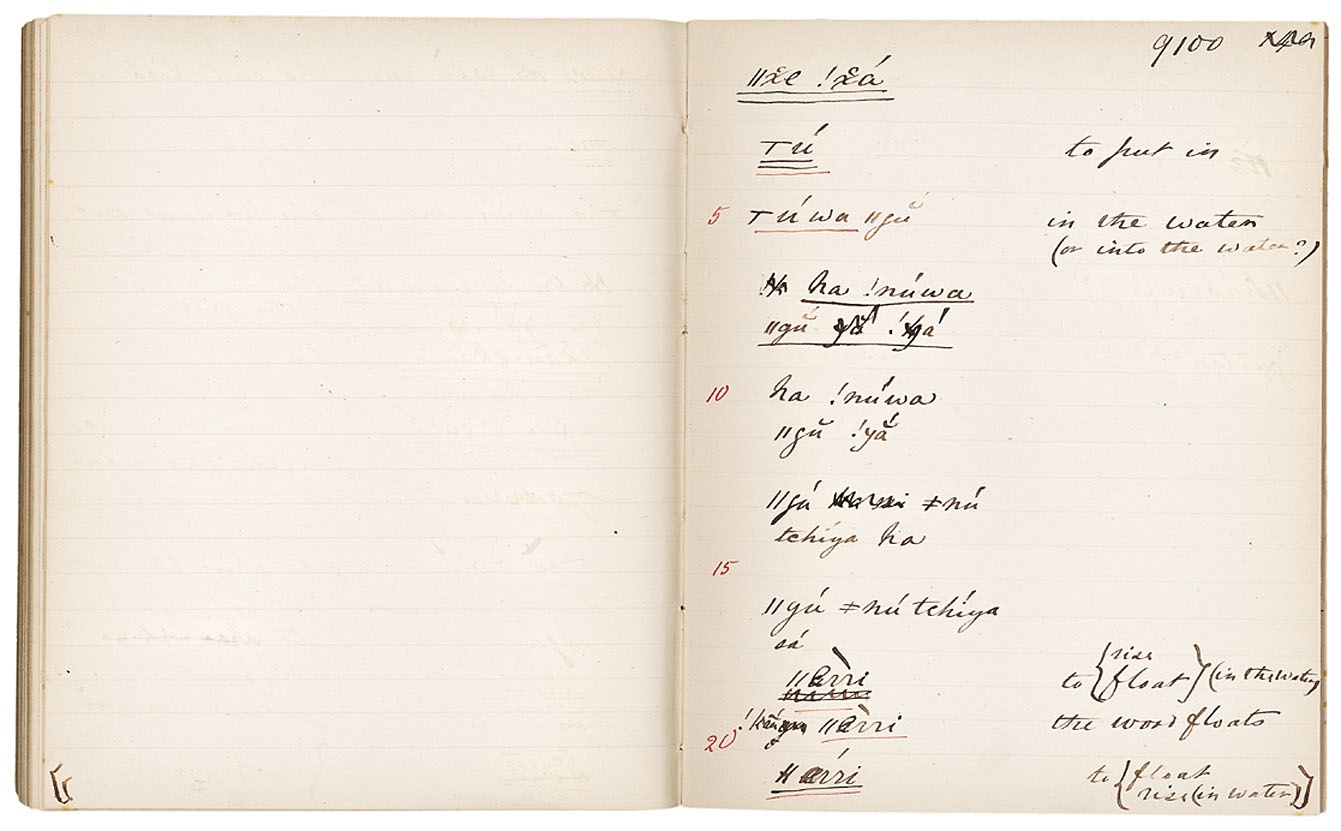 9100
ǁχe !χá
Tú to put in
5 Túwa ǁgŭ́ in the water
(or into the water?)
ha !núwa
ǁgŭ́ !gá
10 ha !nú́wa
ǁgŭ !yắ
ǁgú ǂnú
tchíya ha
15
ǁgú ǂnú tchíya
sá
ǁérri to {rise float} (in the water)
20 ǁérri the wood floats
ǁérri to {float
rise (in water)}